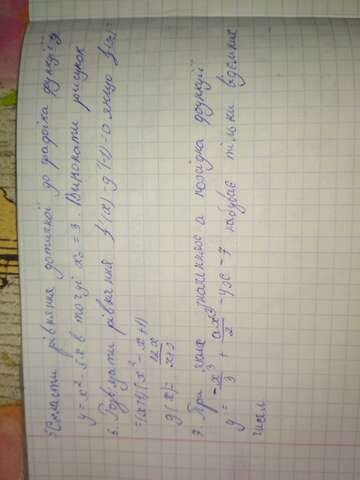 5 Скласти рівняння дотичної до графіка функції
y = x² - 5x в точці x₀ = 3. Виконати рисунок
6. Розв'язати рівняння f'(x) - g'(-2) = 0 якщо f(x) =
=(x+1)(x² - x + 1)
g(x) =
7. При яких значеннях a похідна функції
y = -x³/3 + ax²/2 - 4x - 7 набуває тільки від'ємних
чисел